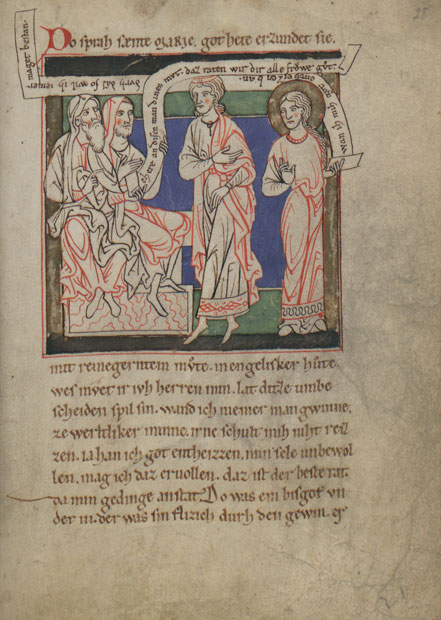 Do sprah sancte marie, got hete erzundet sie.
maget bestan.
chere an disen man dinen mvt. daz raten wir dir alle frowe gůt.
mit reinegerntem mvte. in engelisker hůte.
wes mvet ir ivh herren min. lat ditze umbe
scheiden spil sin. wand ich neimer man gwinne.
ze wertliker minne. ir ne schult mih niht reiz
zen. ia han ich got entheizzen. min sele unbewol
len. mag ich daz ervollen. daz ist der beste rat.
da min gedinge anstat. Do was ein bisgof vn
der in. der was sin flizich durh den gewin. er